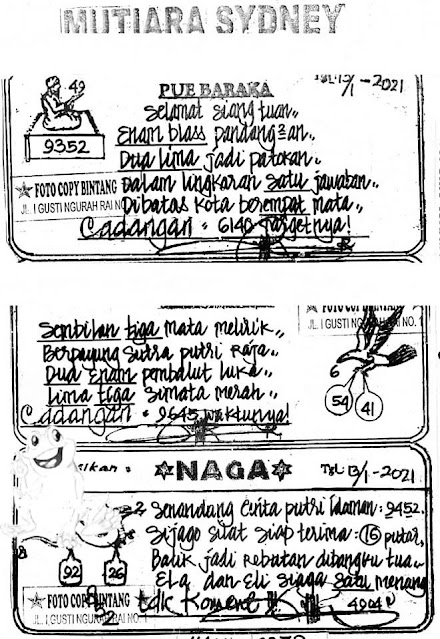 MUTIARA SYDNEY
PUE BARAKA Tgl: 13/1-2021
49
9352
Selamat siang tuan..
Enam blass pandang²an..
Dua lima jadi patokan
Dalam lingkaran satu jawaban..
Dibatas kota berempat mata..
Cadangan = 6140 Targetnya!
FOTO COPY BINTANG
JL. I GUSTI NGURAH RAI NO
FOTO COPY BINTANG
JL. I GUSTI NGURAH RAI NO. 1
Sembilan tiga mata melirik..
Berpayung sutra putri raja..
Dua Enam pembalut luka..
Lima tiga simata merah..
Cadangan = 9645 waktunya!
6
54 41
NAGA Tgl: 13/1-2021
Senandung cerita putri idaman: 9452.
Sijago silat siap terima: 16 putar,
Balik jadi rebutan
Ela dan Eli siaga satu menang
2
8
92 26
FOTO COPY BINTANG
JL. I GUSTI NGURAH RAI NO. 1